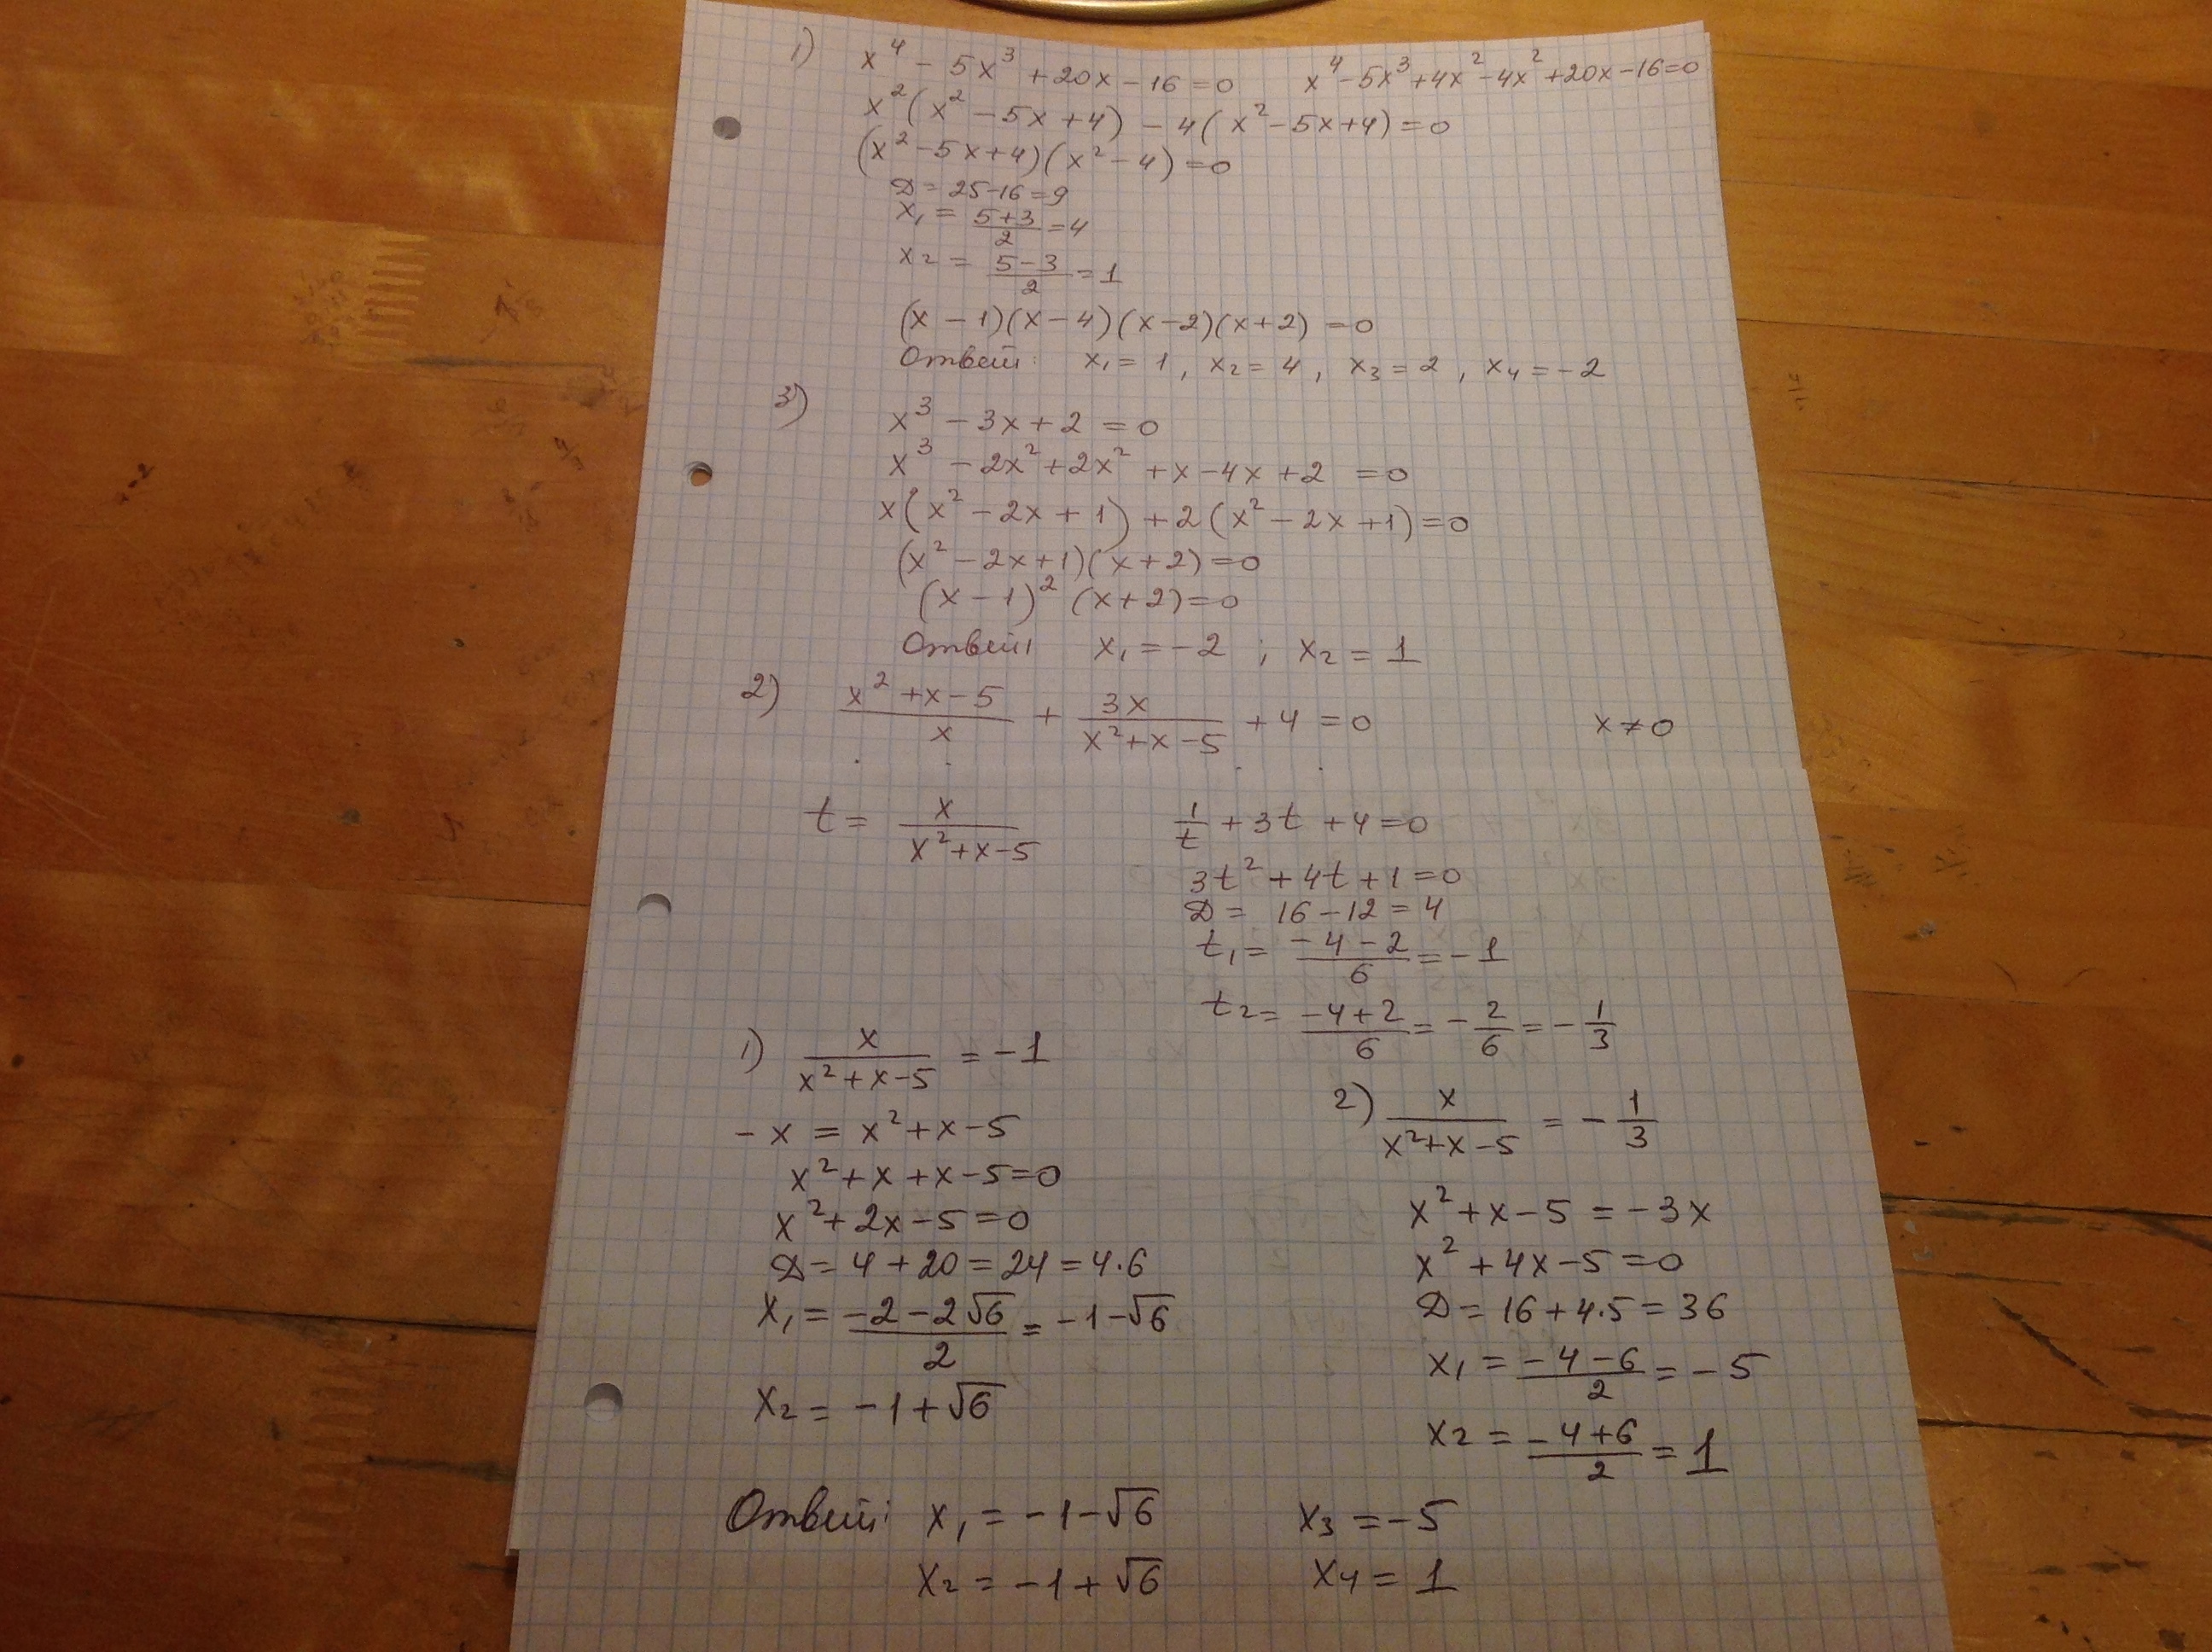 1) x⁴ - 5x³ + 20x - 16 = 0    x⁴ - 5x³ + 4x² - 4x² + 20x - 16 = 0
x²(x² - 5x + 4) - 4(x² - 5x + 4) = 0
(x² - 5x + 4)(x² - 4) = 0
D = 25 - 16 = 9
x₁ = (5+3)/2 = 4
x₂ = (5-3)/2 = 1
(x - 1)(x - 4)(x - 2)(x + 2) = 0
Ответ: x₁ = 1, x₂ = 4, x₃ = 2, x₄ = -2
3) x³ - 3x + 2 = 0
x³ - 2x² + 2x² + x - 4x + 2 = 0
x(x² - 2x + 1) + 2(x² - 2x + 1) = 0
(x² - 2x + 1)(x + 2) = 0
(x - 1)²(x + 2) = 0
Ответ: x₁ = -2 ; x₂ = 1
2) (x² + x - 5)/x + 3x/(x² + x - 5) + 4 = 0    x ≠ 0
t = x/(x² + x - 5)    1/t + 3t + 4 = 0
3t² + 4t + 1 = 0
D = 16 - 12 = 4
t₁ = (-4 - 2)/6 = -1
t₂ = (-4 + 2)/6 = -2/6 = -1/3
1) x/(x² + x - 5) = -1
-x = x² + x - 5
x² + x + x - 5 = 0
x² + 2x - 5 = 0
D = 4 + 20 = 24 = 4·6
x₁ = (-2 - 2√6)/2 = -1 - √6
x₂ = -1 + √6
2) x/(x² + x - 5) = -1/3
x² + x - 5 = -3x
x² + 4x - 5 = 0
D = 16 + 4·5 = 36
x₁ = (-4 - 6)/2 = -5
x₂ = (-4 + 6)/2 = 1
Ответ: x₁ = -1 - √6    x₃ = -5
x₂ = -1 + √6    x₄ = 1